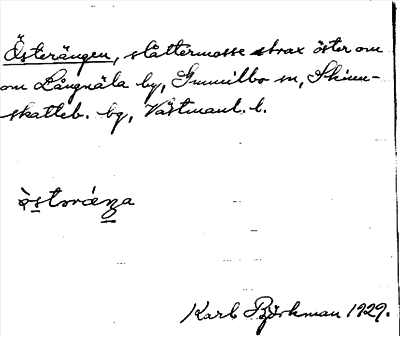 Österängen, slåttermosse strax öster om
om Långnäla by, Gunnilbo sn, Skinn-
skatteb. bg, Västmanl. l.
Karl Björkman 1929.